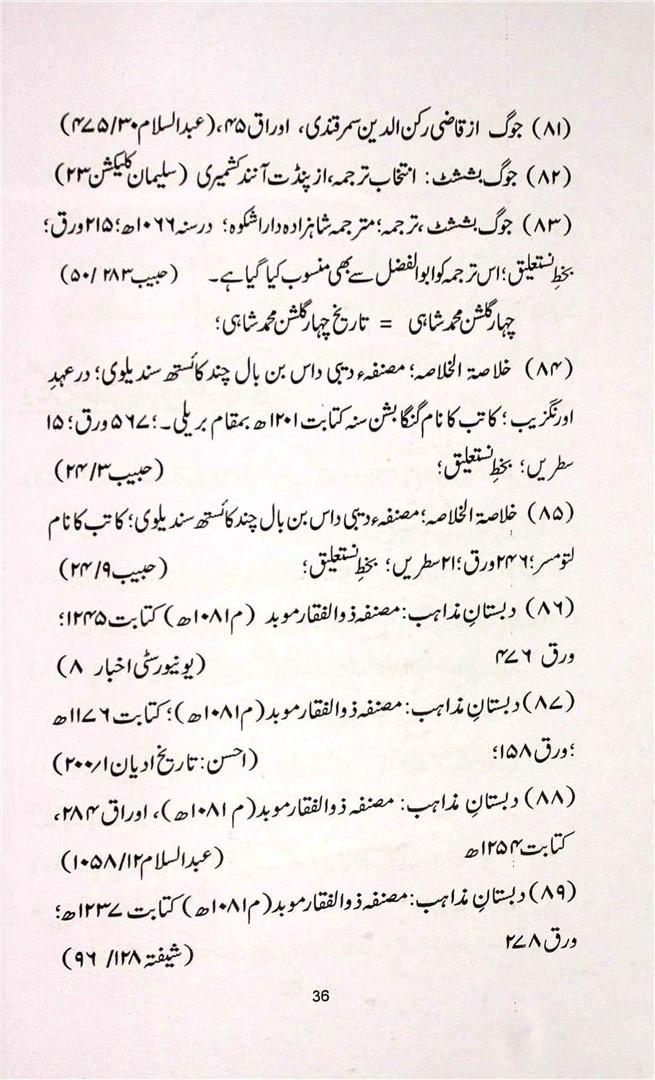 (۸۱) جوگ از قاضی رکن الدین سمرقندی، اوراق ۴۵، (عبدالسلام ۴۷۵/۳۰)
(۸۲) جوگ بششٹ : انتخاب ترجمہ، از پنڈت آنند کشمیری (سلیمان کلیکشن ۲۳)
(۸۳) جوگ بششٹ، ترجمہ؛ مترجمہ شاہزادہ دارا شکوہ؛ در سنہ ۱۰۶۶ھ؛ ۲۱۵ ورق؛
بخطِ نستعلیق؛ اس ترجمہ کو ابوالفضل سے بھی منسوب کیا گیا ہے۔ (حبیب ۲۸۳ /۵۰)
چہار گلشن محمد شاہی = تاریخ چہار گلشن محمد شاہی؛
(۸۴) خلاصۃ الخلاصہ؛ مصنفہء دیبی داس بن بال چند کائستھ سندیلوی؛ در عہدِ
اورنگزیب؛ کاتب کا نام گنگا بشن سنہ کتابت ۱۲۰۱ھ بمقام بریلی۔؛ ۵۶۷ ورق؛ ۱۵
سطریں؛ بخطِ نستعلیق؛ (حبیب ۲۴/۳)
(۸۵) خلاصۃ الخلاصہ؛ مصنفہء دیبی داس بن بال چند کائستھ سندیلوی؛ کاتب کا نام
لتومسر؛ ۲۴۶ ورق؛ ۲۱ سطریں؛ بخطِ نستعلیق؛ (حبیب ۲۴/۹)
(۸۶) دبستانِ مذاہب: مصنفہ ذوالفقار موبد (م ۱۰۸۱ھ) کتابت ۱۲۴۵؛
ورق ۴۷۶ (یونیورسٹی اخبار ۸)
(۸۷) دبستانِ مذاہب: مصنفہ ذوالفقار موبد (م ۱۰۸۱ھ)؛ کتابت ۱۱۷۶ھ
؛ ورق ۱۵۸؛ (احسن: تاریخ ادیان ۲۰۰/۱)
(۸۸) دبستانِ مذاہب: مصنفہ ذوالفقار موبد (م ۱۰۸۱ھ)، اوراق ۲۸۴،
کتابت ۱۲۵۴ھ (عبدالسلام ۱۰۵۸/۱۲)
(۸۹) دبستانِ مذاہب: مصنفہ ذوالفقار موبد (م ۱۰۸۱ھ) کتابت ۱۲۳۷ھ؛
ورق ۲۷۸ (شیفتہ ۱۲۸/ ۹۶)
36